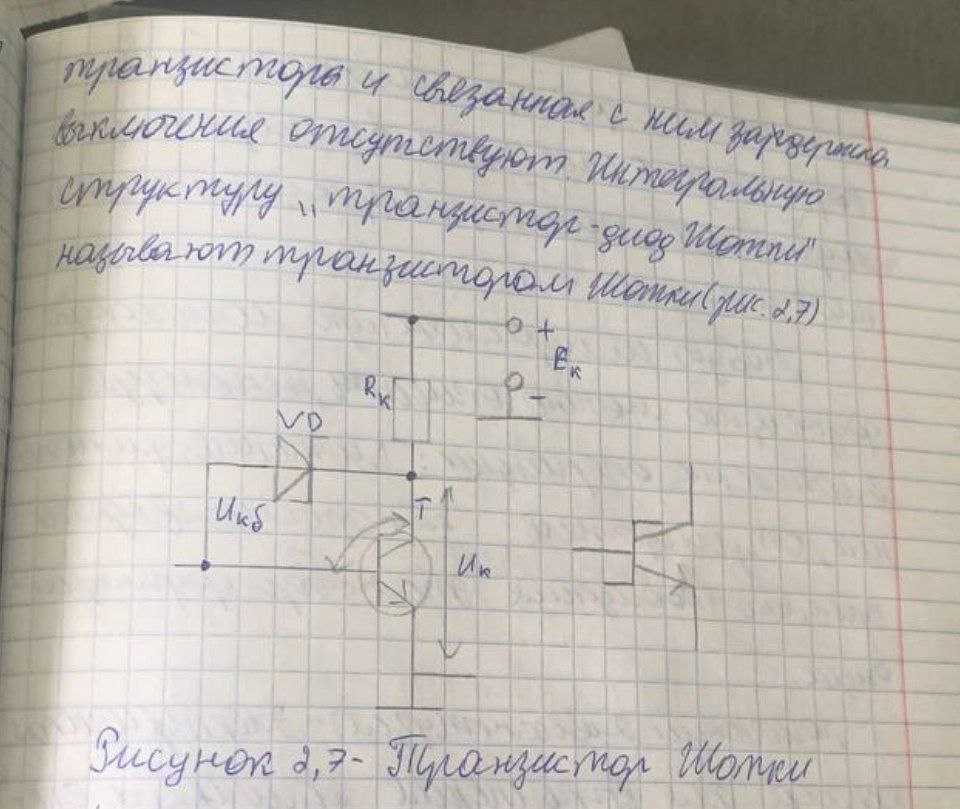 транзистора и связанная с ним задержка
выключения отсутствуют. Интегральную
структуру „транзистор-диод Шоттки"
называют транзистором Шоттки (рис. 2,7)
+
Eк
-
Rк
VD
Uкб
T
Uк
Рисунок 2,7- Транзистор Шоттки